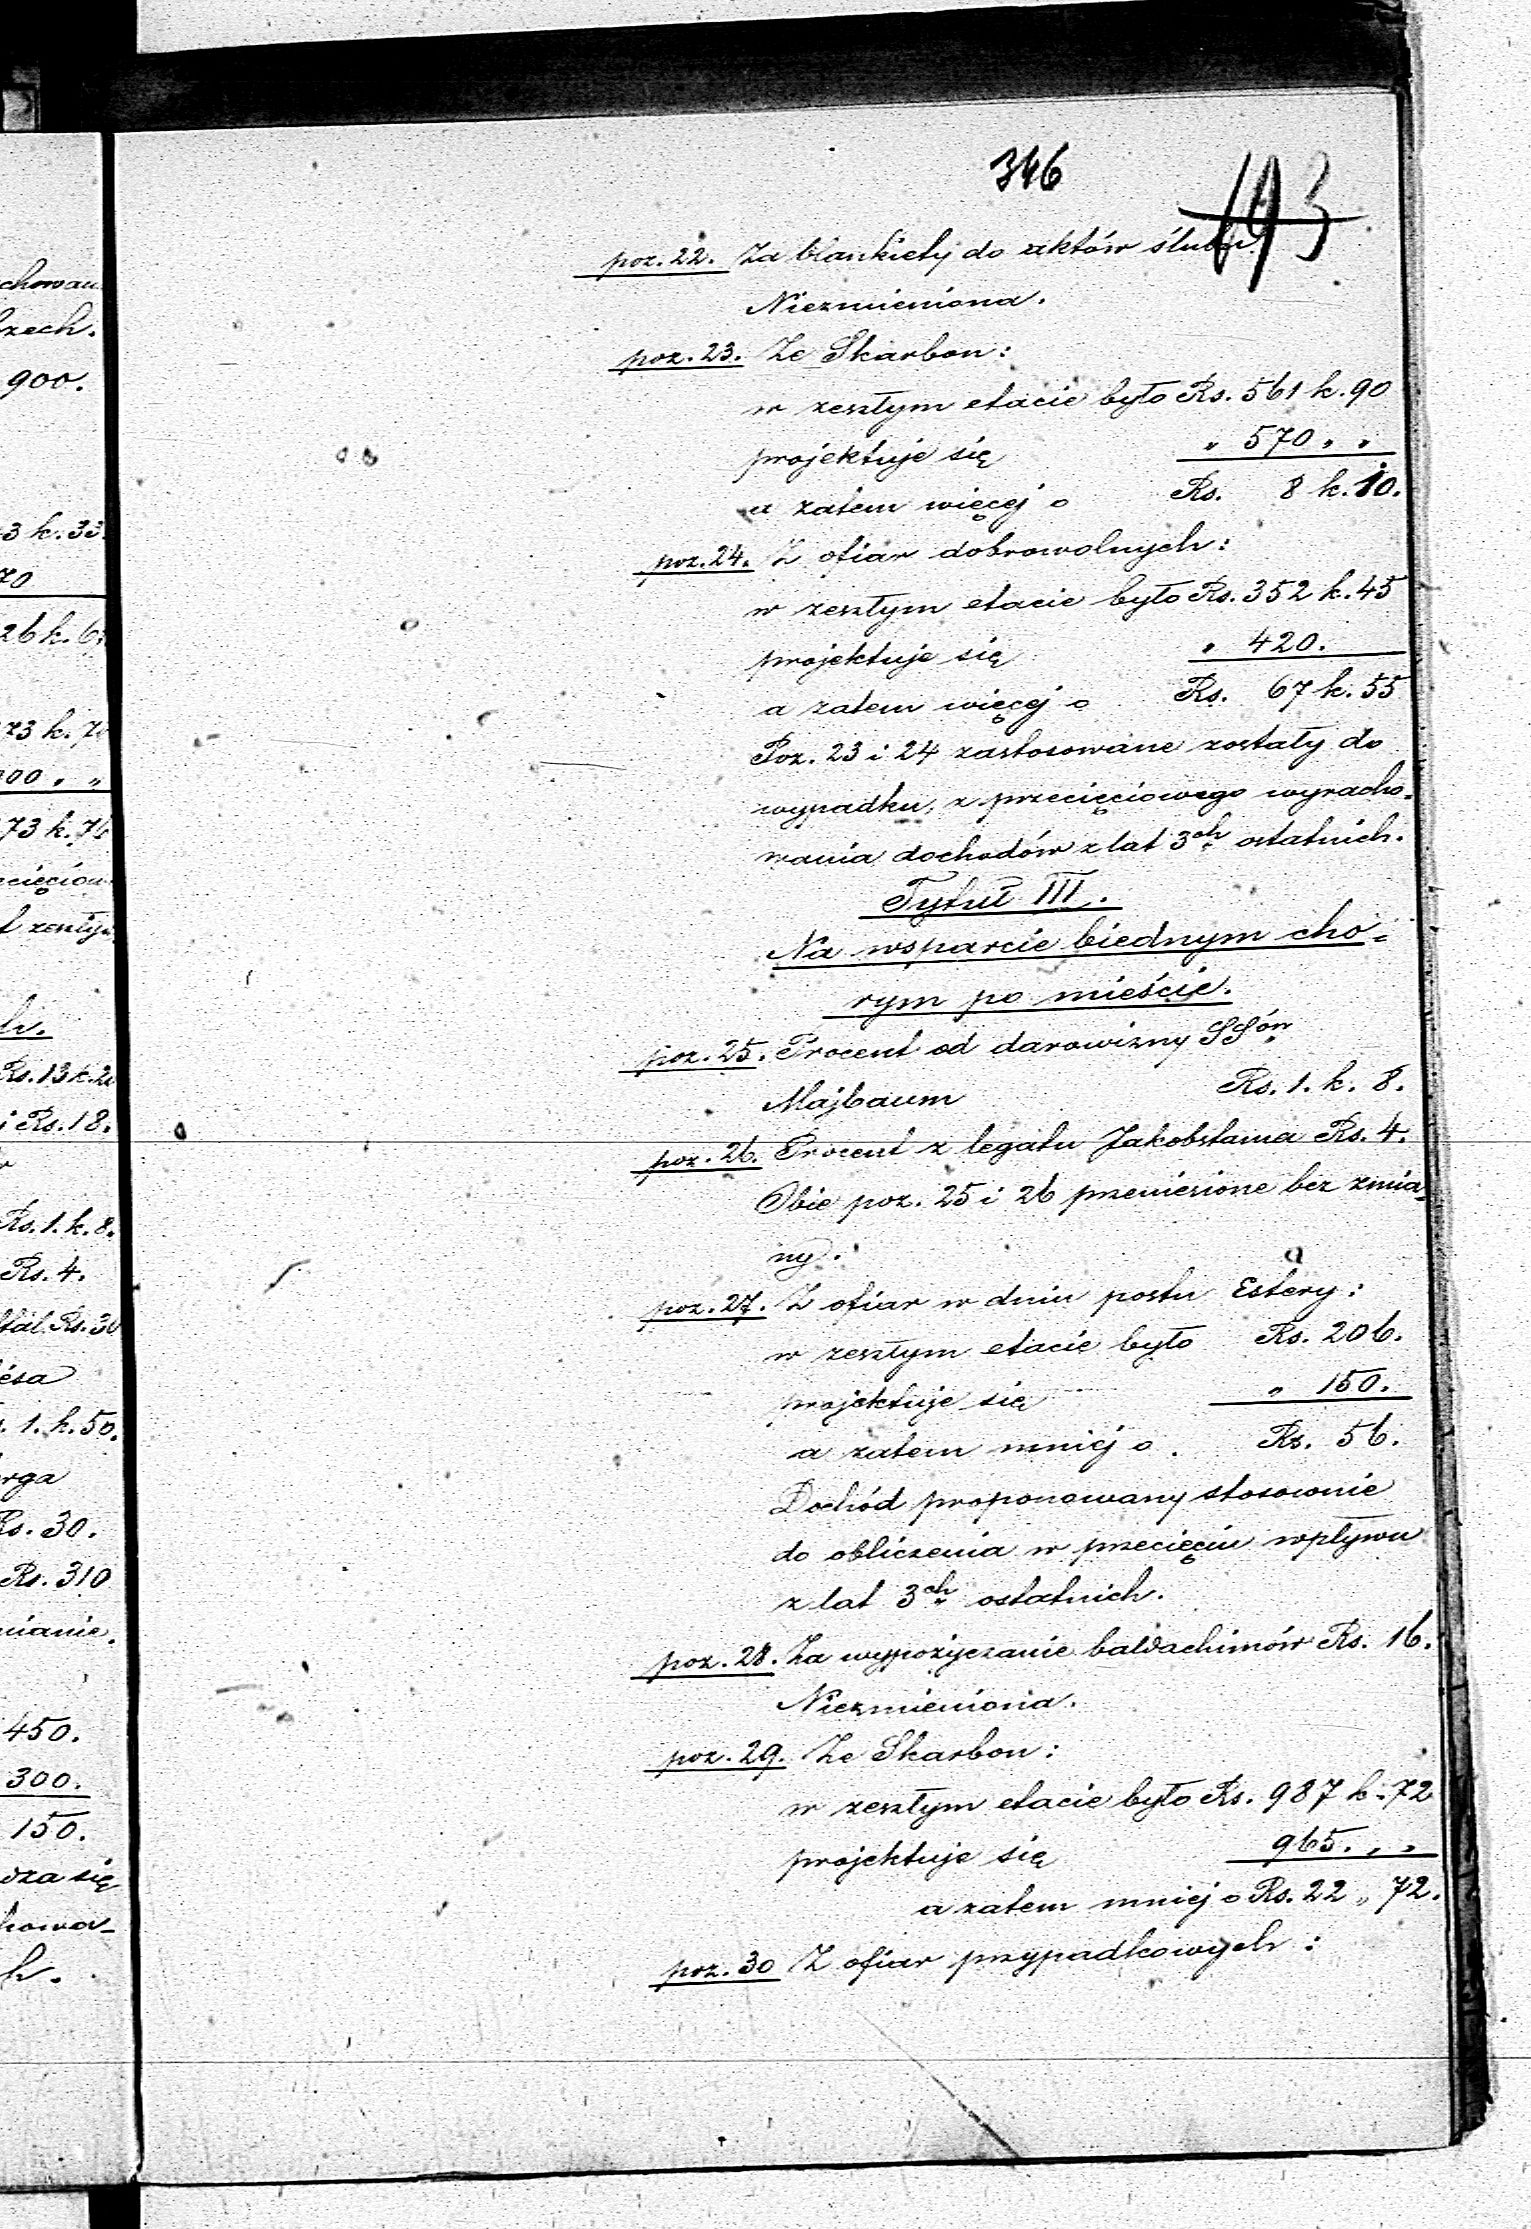 346
193
poz. 22. Za blankiety do aktów ślubn.
Niezmieniona.
poz. 23. Ze Skarbon:
w zeszłym etacie było Rs. 561 k. 90
projektuje się " 570 " "
a zatem więcej o Rs. 8 k. 10.
poz. 24. Z ofiar dobrowolnych:
w zeszłym etacie było Rs. 352 k. 45
projektuje się " 420.
a zatem więcej o Rs. 67 k. 55
Poz. 23 i 24 zastosowane zostały do
wypadku, z przecięciowego wyracho-
wania dochodów z lat 3ch ostatnich.
Tytuł III.
Na wsparcie biednym cho-
rym po mieście.
poz. 25. Procent od darowizny SSów
Majbaum Rs. 1. k. 8.
poz. 26. Procent z legatu Jakobstama Rs. 4.
Obie poz. 25 i 26 przeniesione bez zmia-
ny.
poz. 27. Z ofiar w dniu postu Estery:
w zeszłym etacie było Rs. 206.
projektuje się " 150.
a zatem mniej o . Rs. 56.
Dochód proponowany stosownie
do obliczenia w przecięciu wpływu
z lat 3ch ostatnich.
poz. 28. Za wypożyczanie baldachimów Rs. 16.
Niezmieniona.
poz. 29. Ze Skarbon:
w zeszłym etacie było Rs. 987 k. 72
projektuje się 965. " "
a zatem mniej o Rs. 22 " 72.
poz. 30 Z ofiar przypadkowych:
900.
3 k. 33.
70
Rs. 18.
Rs. 1. k. 8.
Rs. 4.
1. k. 50.
Rs. 30.
Rs. 310
450.
300.
150.